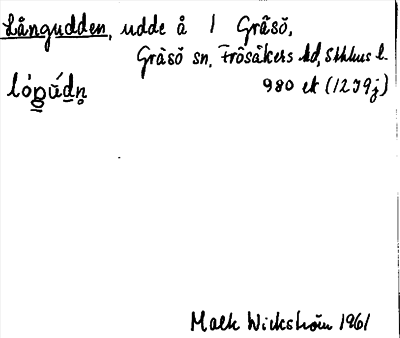 Långudden, udde å 1 Gräsö,
Gräsö sn, Frösåkers hd, Sthlms l.
lóŋúdn̥ 980 ek (12J9j)
Maek Wickström 1961